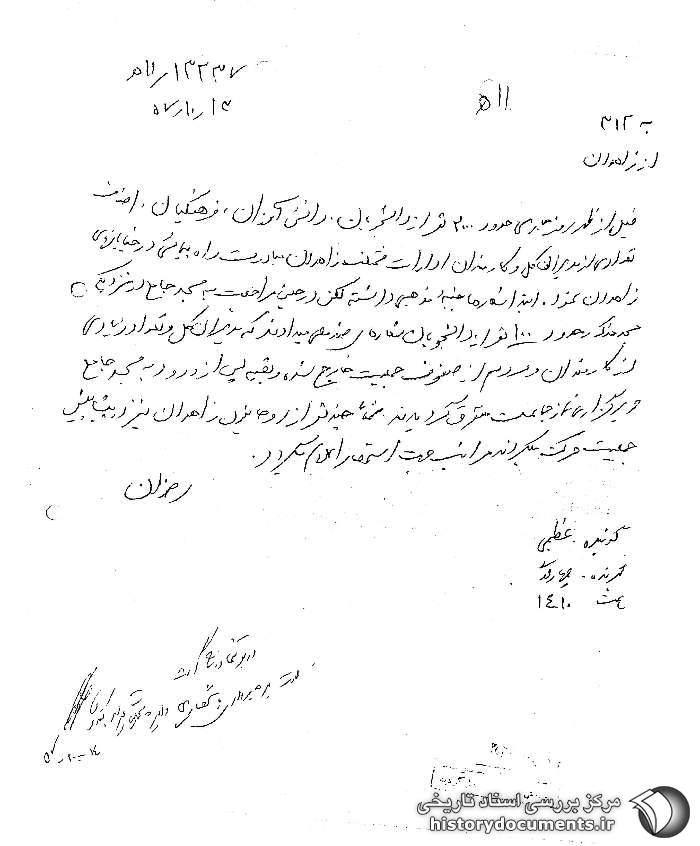 ۱۳۲۳۷ / ۱۱ﻫ
۱۱ﻫ
۱۳ /۱۰ /۵۷
به ۳۱۲
از زاهدان
قبل از ظهر روز جاری حدود ۳۰۰۰ نفر از دانشجویان، دانش آموزان، فرهنگیان، اصناف
تعدادی از مدیران کل و کارمندان ادارات مختلف زاهدان مبادرت به راه پیمائی در خیابانهای
زاهدان نمودند. ابتدا شعارها جنبه مذهبی داشته لکن در حین مراجعت به مسجد جامع در نزدیکی
مسجد مذکور حدود ۱۰۰ نفر از دانشجویان شعارهای میدادند که مدیران کل و تعداد زیادی
از کارمندان و مردم از صفوف جمعیت خارج شده و بقیه پس از ورود به مسجد جامع
و برگزاری نماز جماعت متفرق گردیدند. ضمنا چند نفر از روحانیون زاهدان نیز در پیشاپیش
جمعیت حرکت میکردند مراتب جهت استحضار اعلام میگردد.
رضوان
گوینده عظیمی
گیرنده
ساعت ۱۴۱۰
مرکز بررسی اسناد تاریخی
historydocuments.ir